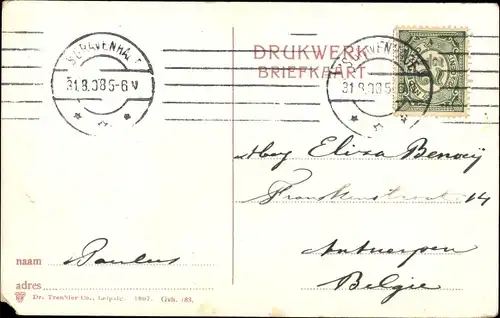 'S GRAVENHAGE
31.8.08 5-6 V
DRUKWERK
BRIEFKAART
'S GRAVENHAGE
31.8.08 5-6 V
Elisa Benoeij
14
Antwerpen
België
naam Paulus
adres
Dr. Trenkler Co., Leipzig. 1907. Gvh. 83.